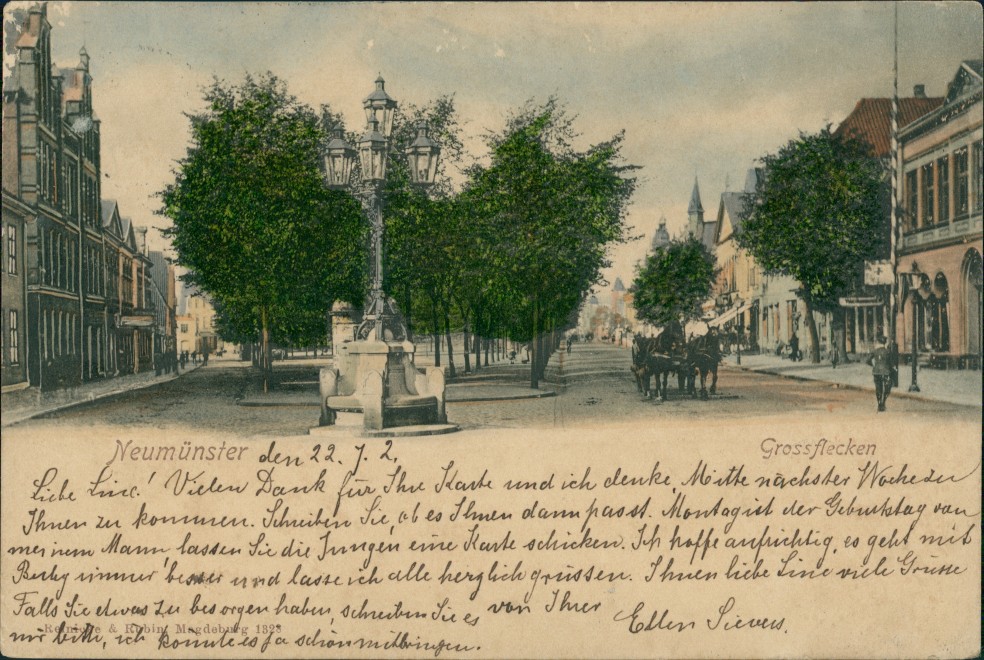 Neumünster den 22. 7. 2. Grossflecken
Liebe Line! Vielen Dank für Ihre Karte und ich denke, Mitte nächster Woche zu
Ihnen zu kommen. Schreiben Sie, ob es Ihnen dann passt. Montag ist der Geburtstag von
meinem Mann, lassen Sie die Jungen eine Karte schicken. Ich hoffe aufrichtig, es geht mit
immer besser und lasse ich alle herzlich grüssen. Ihnen liebe Line viele Grüsse
Falls Sie etwas zu besorgen haben, schreiben Sie es von Ihrer Ellen Sievers.
Reinicke & Rubin, Magdeburg 1323
mir bitte, ich könnte es ja schön mitbringen.